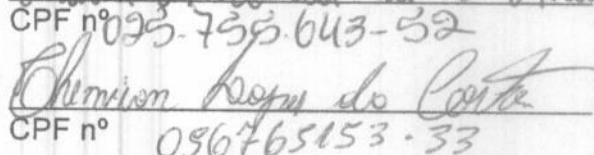 CPF nº 025.755.643-52
Lopes da Costa
CPF nº 036765153-33